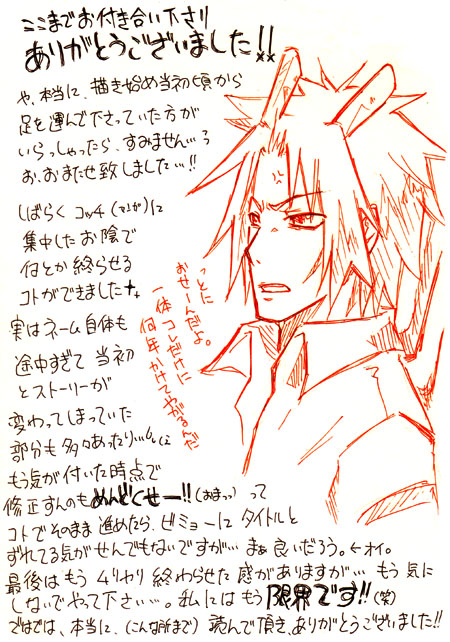 ここまでお付き合い下さり
ありがとうございました!!
や、本当に、描き始め当初頃から
足を運んで下さっていた方が
いらっしゃったら、すみません…ろ
お、おまたせ致しました…!!
しばらく コッチ(マンガ)に
集中したお陰で
何とか終らせる
コトができました
実はネーム自体も
途中すぎて 当初
とストーリーが
変わってしまっていた
部分も多々あったり…
もう気が付いた時点で
修正すんのもめんどくせー!!(おまっ) って
コトでそのまま進めたら、ビミョーに タイトルと
ずれてる気がせんでもないですが… まぁ良いだろう。←オイ。
最後はもう ムリヤリ 終わらせた 感がありますが… もう 気に
しないでやって下さい…。私にはもう 限界です!!(笑)
ではでは、本当に、(こんな所まで) 読んで頂き、ありがとうございました!!
っとに
おせーんだよ。
一体 コレだけに
何年かけてやがるんだ